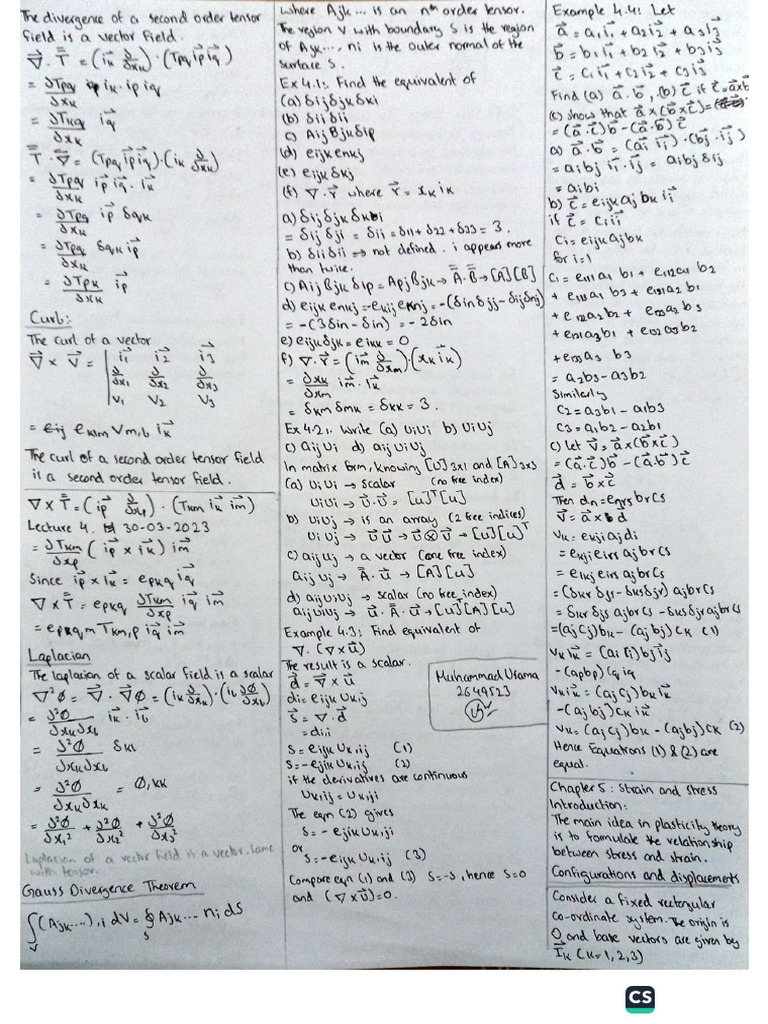 The divergence of a second order tensor
field is a vector field.
∇⃗ · T̿ = (i⃗k ∂/∂xk) · (Tpq i⃗p i⃗q)
= ∂Tpq/∂xk ik · ip iq
= ∂Tkq/∂xk i⃗q
T̿ · ∇⃗ = (Tpq i⃗p i⃗q) · (ik ∂/∂xk)
= ∂Tpq/∂xk i⃗p i⃗q · i⃗k
= ∂Tpq/∂xk i⃗p δqk
= ∂Tpq/∂xk δqk i⃗p
= ∂Tpk/∂xk i⃗p
Curl:
The curl of a vector
∇⃗ × V⃗ = | i⃗1 i⃗2 i⃗3
∂/∂x1 ∂/∂x2 ∂/∂x3
V1 V2 V3
= eklm Vm,l i⃗k
The curl of a second order tensor field
is a second order tensor field.
∇ × T̿ = (i⃗p ∂/∂xp) · (Tkm i⃗k i⃗m)
Lecture 4. 30-03-2023
= ∂Tkm/∂xp (i⃗p × i⃗k) i⃗m
Since i⃗p × i⃗k = epkq i⃗q
∇ × T̿ = epkq ∂Tkm/∂xp i⃗q i⃗m
= epkq Tkm,p i⃗q i⃗m
Laplacian
The laplacian of a scalar field is a scalar
∇²Ø = ∇⃗ · ∇⃗Ø = (ik ∂/∂xk) · (il ∂Ø/∂xl)
= ∂²Ø/∂xk∂xl i⃗k · i⃗l
= ∂²Ø/∂xk∂xl δkl
= ∂²Ø/∂xk∂xk = Ø,kk
= ∂²Ø/∂x1² + ∂²Ø/∂x2² + ∂²Ø/∂x3²
Laplacian of a vector field is a vector. Same
with tensor.
Gauss Divergence Theorem
∫V (Ajk....),i dV = ∮S Ajk.... ni dS
where Ajk... is an nth order tensor.
The region V with boundary S is the region
of Ajk..., ni is the outer normal of the
surface S.
Ex 4.1: Find the equivalent of
(a) δij δjk δki
(b) δii δii
c) Aij Bjk δip
(d) eijk enkj
(e) eijk δkj
(f) ∇ · r⃗ where r⃗ = xk ik
a) δij δjk δki
= δij δji = δii = δ11 + δ22 + δ33 = 3.
b) δii δii => not defined. i appears more
than twice.
c) Aij Bjk δip = Apj Bjk → A̿ · B̿ → [A][B]
d) eijk enkj = -ekij eknj = -(δin δjj - δij δnj)
= -(3δin - δin) = -2δin
e) eijk δjk = eikk = 0
f) ∇⃗ · r⃗ = (i⃗m ∂/∂xm) · (xk i⃗k)
= ∂xk/∂xm i⃗m · i⃗k
= δkm δmk = δkk = 3.
Ex 4.2: Write (a) UiUi b) UiUj
c) aijUi d) aijUiUj
In matrix form, knowing [U]3x1 and [A]3x3
(a) UiUi → scalar (no free index)
UiUi → U⃗ · U⃗ = [u]ᵀ[u]
b) UiUj → is an array (2 free indices)
Ui Uj → U⃗ U⃗ → U⃗ ⊗ U⃗ → [u][u]ᵀ
c) aij uj → a vector (one free index)
aij uj → A̿ · u⃗ → [A][u]
d) aijUiUj → scalar (no free index)
aijUiUj → u⃗ · A̿ · u⃗ → [u]ᵀ[A][u]
Example 4.3: Find equivalent of
∇ · (∇ × u⃗)
The result is a scalar.
d⃗ = ∇⃗ × u⃗
di = eijk Uk,j
S⃗ = ∇ · d⃗
= di,i
S = eijk Uk,ij (1)
S = -ejik Uk,ij (2)
if the derivatives are continuous
Uk,ij = Uk,ji
The eqn (2) gives
S = -ejik Uk,ji
or
S = -eijk Uk,ij (3)
Compare eqn (1) and (3) S = -S, hence S = 0
and (∇ × u⃗) = 0.
Muhammad Usama
2649523
Example 4.4: Let
a⃗ = a1 i⃗1 + a2 i⃗2 + a3 i⃗3
b⃗ = b1 i⃗1 + b2 i⃗2 + b3 i⃗3
c⃗ = c1 i⃗1 + c2 i⃗2 + c3 i⃗3
Find (a) a⃗ · b⃗, (b) c⃗ if c⃗ = a⃗ × b⃗
(c) show that a⃗ × (b⃗ × c⃗) =
= (a⃗ · c⃗) b⃗ - (a⃗ · b⃗) c⃗
a) a⃗ · b⃗ = (ai i⃗i) · (bj · i⃗j)
= ai bj i⃗i · i⃗j = ai bj δij
= ai bi
b) c⃗ = eijk aj bk i⃗i
if c⃗ = ci i⃗i
ci = eijk aj bk
for i = 1
c1 = e111 a1 b1 + e112 a1 b2
+ e113 a1 b3 + e121 a2 b1
+ e122 a2 b2 + e123 a2 b3
+ e131 a3 b1 + e132 a3 b2
+ e133 a3 b3
= a2b3 - a3b2
Similarly
c2 = a3b1 - a1b3
c3 = a1b2 - a2b1
c) let V⃗ = a⃗ × (b⃗ × c⃗)
= (a⃗ · c⃗) b⃗ - (a⃗ · b⃗) c⃗
d⃗ = b⃗ × c⃗
Then dn = enrs br cs
V⃗ = a⃗ × d
Vk = ekji aj di
= ekji eirs aj br cs
= eikj eirs aj br cs
= (δkr δjs - δks δjr) aj br cs
= δkr δjs aj br cs - δks δjr aj br cs
= (aj cj) bk - (aj bj) ck (1)
Vk i⃗k = (ai ci) bj i⃗j
- (ap bp) cq iq
Vk ik = (aj cj) bk i⃗k
- (aj bj) ck i⃗k
Vk = (aj cj) bk - (aj bj) ck (2)
Hence Equations (1) & (2) are
equal.
Chapter 5: Strain and stress
Introduction:
The main idea in plasticity theory
is to formulate the relationship
between stress and strain.
Configurations and displacements
Consider a fixed rectangular
co-ordinate system. The origin is
O and base vectors are given by
I⃗k (k=1,2,3)
CS